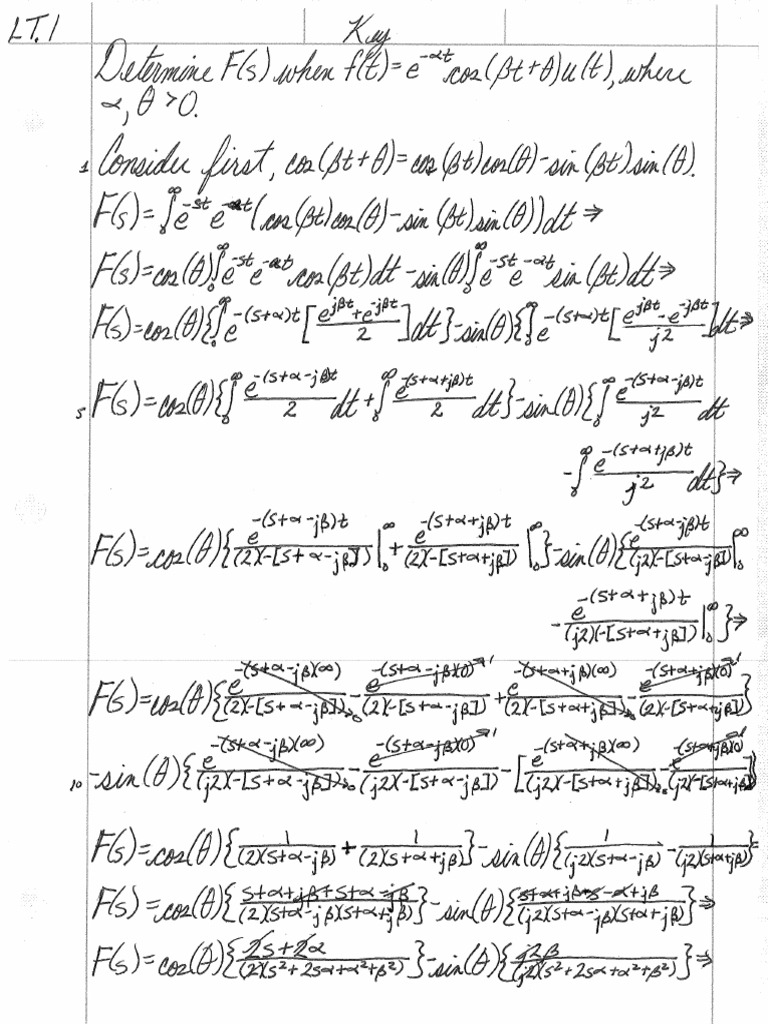 LT.1 Key
Determine F(s) when f(t)=e^{-αt}cos(βt+θ)u(t), where
α, θ>0.
1 Consider first, cos(βt+θ)=cos(βt)cos(θ)-sin(βt)sin(θ).
F(s)=∫_0^∞ e^{-st} e^{-αt}(cos(βt)cos(θ)-sin(βt)sin(θ))dt⇒
F(s)=cos(θ)∫_0^∞ e^{-st} e^{-αt} cos(βt)dt-sin(θ)∫_0^∞ e^{-st} e^{-αt} sin(βt)dt⇒
F(s)=cos(θ){∫_0^∞ e^{-(s+α)t}[(e^{jβt}+e^{-jβt})/2]dt}-sin(θ){∫_0^∞ e^{-(s+α)t}[(e^{jβt}-e^{-jβt})/j2]dt⇒
5 F(s)=cos(θ){∫_0^∞ e^{-(s+α-jβ)t}/2 dt+∫_0^∞ e^{-(s+α+jβ)t}/2 dt}-sin(θ){∫_0^∞ e^{-(s+α-jβ)t}/j2 dt
-∫_0^∞ e^{-(s+α+jβ)t}/j2 dt}⇒
F(s)=cos(θ){e^{-(s+α-jβ)t}/(2)(-[s+α-jβ])|_0^∞+e^{-(s+α+jβ)t}/(2)(-[s+α+jβ])|_0^∞}-sin(θ){e^{-(s+α-jβ)t}/(j2)(-[s+α-jβ])|_0^∞
-e^{-(s+α+jβ)t}/(j2)(-[s+α+jβ])|_0^∞}⇒
F(s)=cos(θ){e^{-(s+α-jβ)(∞)}/(2)(-[s+α-jβ])→0-e^{-(s+α-jβ)(0)→1}/(2)(-[s+α-jβ])+e^{-(s+α+jβ)(∞)}/(2)(-[s+α+jβ])→0-e^{-(s+α+jβ)(0)→1}/(2)(-[s+α+jβ])}
10 -sin(θ){e^{-(s+α-jβ)(∞)}/(j2)(-[s+α-jβ])→0-e^{-(s+α-jβ)(0)→1}/(j2)(-[s+α-jβ])-[e^{-(s+α+jβ)(∞)}/(j2)(-[s+α+jβ])→0-e^{-(s+α+jβ)(0)→1}/(j2)(-[s+α+jβ])]}
F(s)=cos(θ){1/(2)(s+α-jβ)+1/(2)(s+α+jβ)}-sin(θ){1/(j2)(s+α-jβ)-1/(j2)(s+α+jβ)}⇒
F(s)=cos(θ){s+α+jβ+s+α-jβ/(2)(s+α-jβ)(s+α+jβ)}-sin(θ){s+α+jβ-s-α+jβ/(j2)(s+α-jβ)(s+α+jβ)}⇒
F(s)=cos(θ){2s+2α/(2)(s²+2sα+α²+β²)}-sin(θ){j2β/(j2)(s²+2sα+α²+β²)}⇒